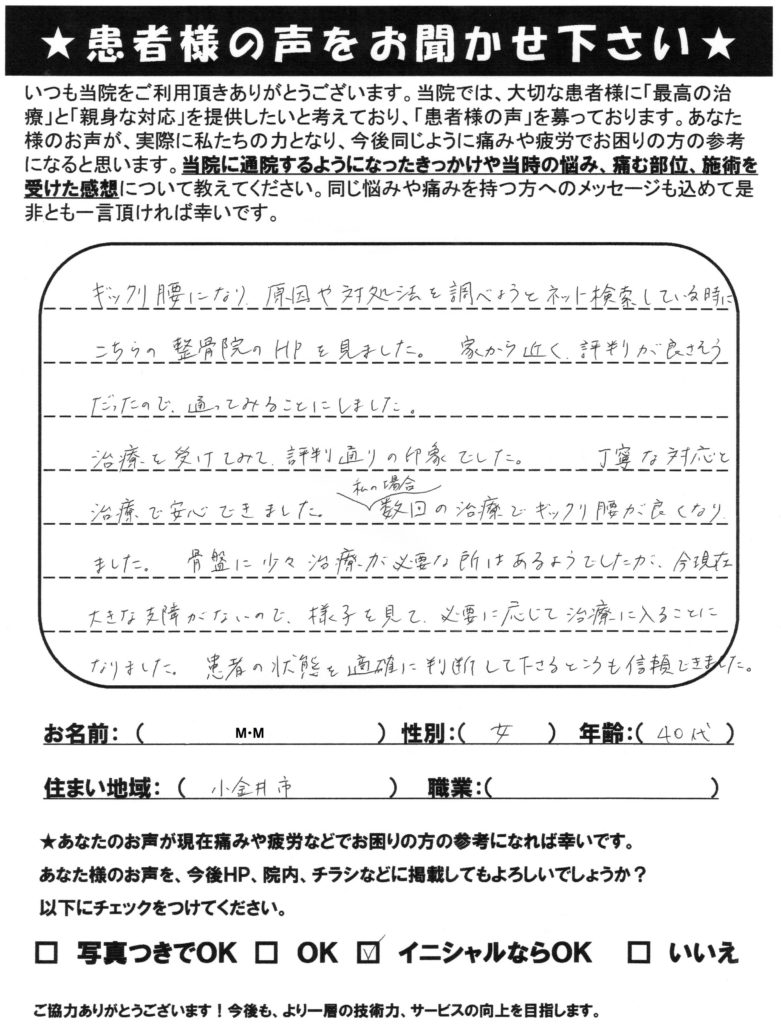 ★患者様の声をお聞かせ下さい★
いつも当院をご利用頂きありがとうございます。当院では、大切な患者様に「最高の治
療」と「親身な対応」を提供したいと考えており、「患者様の声」を募っております。あなた
様のお声が、実際に私たちの力となり、今後同じように痛みや疲労でお困りの方の参考
になると思います。当院に通院するようになったきっかけや当時の悩み、痛む部位、施術を
受けた感想について教えてください。同じ悩みや痛みを持つ方へのメッセージも込めて是
非とも一言頂ければ幸いです。
ギックリ腰になり、原因や対処法を調べようとネット検索している時に
こちらの整骨院のHPを見ました。 家から近く、評判が良さそう
だったので、通ってみることにしました。
治療を受けてみて、評判通りの印象でした。 丁寧な対応と
私の場合
治療で安心できました。 数回の治療でギックリ腰が良くなり
ました。 骨盤に少々治療が必要な所はあるようでしたが、今現在
大きな支障がないので、様子を見て、必要に応じて治療に入ることに
なりました。 患者の状態を適確に判断して下さるところも信頼できました。
お名前：（ M・M ） 性別：（ 女 ） 年齢：（ 40代 ）
住まい地域：（ 小金井市 ） 職業：（ ）
★あなたのお声が現在痛みや疲労などでお困りの方の参考になれば幸いです。
あなた様のお声を、今後HP、院内、チラシなどに掲載してもよろしいでしょうか？
以下にチェックをつけてください。
□ 写真つきでOK □ OK ☑ イニシャルならOK □ いいえ
ご協力ありがとうございます！今後も、より一層の技術力、サービスの向上を目指します。